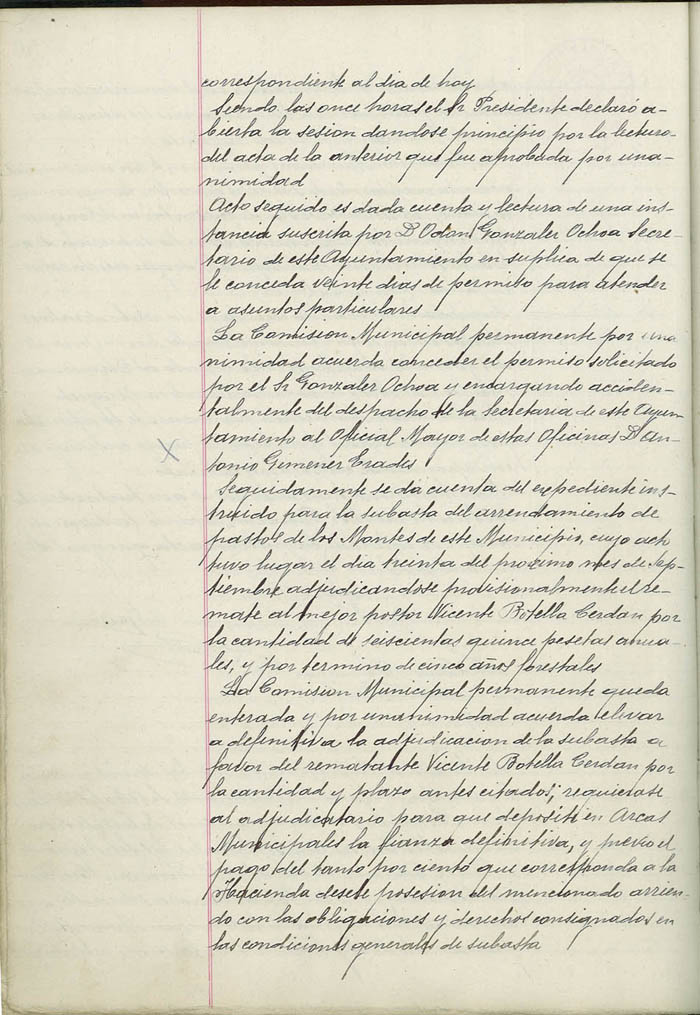 correspondiente al dia de hoy
Siendo las once horas el Sr Presidente declaró a-
bierta la sesion dandose principio por la lectura
del acta de la anterior que fue aprobada por una-
nimidad
Acto seguido es dada cuenta y lectura de una ins-
tancia suscrita por D Odon Gonzalez Ochoa Secre-
tario de este Ayuntamiento en suplica de que se
le conceda veinte dias de permiso para atender
a asuntos particulares
La Comision Municipal permanente por una
nimidad acuerda conceder el permiso solicitado
por el Sr Gonzalez Ochoa y encargando acciden-
talmente del despacho de la Secretaria de este Ayun-
tamiento al Oficial Mayor de estas Oficinas D An-
tonio Gimenez Erades
X
Seguidamente se da cuenta del expediente ins-
truido para la subasta del arrendamiento de
pastos de los Montes de este Municipio, cuyo acto
tuvo lugar el dia treinta del proximo mes de Sep-
tiembre adjudicandose provisionalmente el re-
mate al mejor postor Vicente Botella Cerdan por
la cantidad de seiscientas quince pesetas anua-
les, y por termino de cinco años forestales
La Comision Municipal permanente queda
enterada y por unanimidad acuerda elevar
a definitiva la adjudicacion de la subasta a
favor del rematante Vicente Botella Cerdan por
la cantidad y plazo antes citados; requierase
al adjudicatario para que deposite en Arcas
Municipales la fianza definitiva, y previo el
pago del tanto por ciento que corresponda a la
Hacienda desele posesion del mencionado arrien-
do con las obligaciones y derechos consignados en
las condiciones generales de subasta